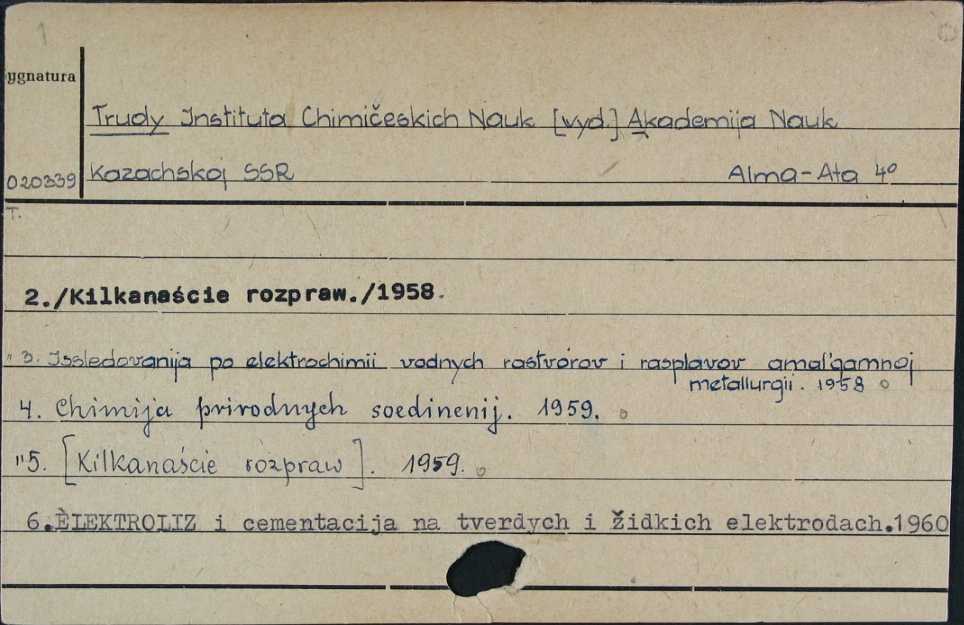 1
ygnatura
Trudy Instituta Chimičeskich Nauk [wyd.] Akademija Nauk
020339 Kazachskoj SSR Alma-Ata 4°
T.
2./Kilkanaście rozpraw./1958.
" 3. Issledovanija po elektrochimii vodnych rastvorov i rasplavov amal'gamnoj
metallurgii. 1958
4. Chimija prirodnych soedinenij. 1959.
"5. [Kilkanaście rozpraw]. 1959.
6. ÈLEKTROLIZ i cementacija na tverdych i židkich elektrodach.1960